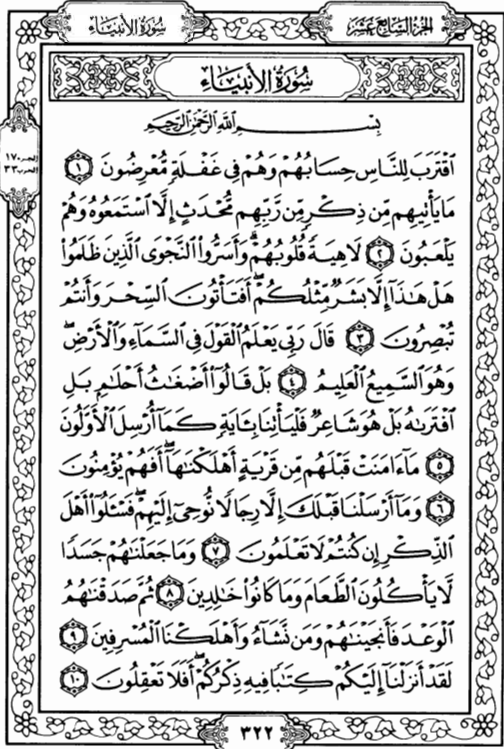 الجُزْءُ السَّابِعَ عَشَرَ
سُورَةُ الأَنْبِيَاءِ
سُورَةُ الأَنْبِيَاءِ
بِسْمِ اللَّهِ الرَّحْمَٰنِ الرَّحِيمِ
الجزء ١٧
الحزب ٣٣
ٱقۡتَرَبَ لِلنَّاسِ حِسَابُهُمۡ وَهُمۡ فِي غَفۡلَةٖ مُّعۡرِضُونَ ١
مَا يَأۡتِيهِم مِّن ذِكۡرٖ مِّن رَّبِّهِم مُّحۡدَثٍ إِلَّا ٱسۡتَمَعُوهُ وَهُمۡ
يَلۡعَبُونَ ٢ لَاهِيَةٗ قُلُوبُهُمۡۗ وَأَسَرُّواْ ٱلنَّجۡوَى ٱلَّذِينَ ظَلَمُواْ
هَلۡ هَٰذَآ إِلَّا بَشَرٞ مِّثۡلُكُمۡۖ أَفَتَأۡتُونَ ٱلسِّحۡرَ وَأَنتُمۡ
تُبۡصِرُونَ ٣ قَالَ رَبِّي يَعۡلَمُ ٱلۡقَوۡلَ فِي ٱلسَّمَآءِ وَٱلۡأَرۡضِۖ
وَهُوَ ٱلسَّمِيعُ ٱلۡعَلِيمُ ٤ بَلۡ قَالُوٓاْ أَضۡغَٰثُ أَحۡلَٰمِۭ بَلِ
ٱفۡتَرَىٰهُ بَلۡ هُوَ شَاعِرٞ فَلۡيَأۡتِنَا بِـَٔايَةٖ كَمَآ أُرۡسِلَ ٱلۡأَوَّلُونَ
٥ مَآ ءَامَنَتۡ قَبۡلَهُم مِّن قَرۡيَةٍ أَهۡلَكۡنَٰهَآۖ أَفَهُمۡ يُؤۡمِنُونَ
٦ وَمَآ أَرۡسَلۡنَا قَبۡلَكَ إِلَّا رِجَالٗا نُّوحِيٓ إِلَيۡهِمۡۖ فَسۡـَٔلُوٓاْ أَهۡلَ
ٱلذِّكۡرِ إِن كُنتُمۡ لَا تَعۡلَمُونَ ٧ وَمَا جَعَلۡنَٰهُمۡ جَسَدٗا
لَّا يَأۡكُلُونَ ٱلطَّعَامَ وَمَا كَانُواْ خَٰلِدِينَ ٨ ثُمَّ صَدَقۡنَٰهُمُ
ٱلۡوَعۡدَ فَأَنجَيۡنَٰهُمۡ وَمَن نَّشَآءُ وَأَهۡلَكۡنَا ٱلۡمُسۡرِفِينَ ٩
لَقَدۡ أَنزَلۡنَآ إِلَيۡكُمۡ كِتَٰبٗا فِيهِ ذِكۡرُكُمۡۚ أَفَلَا تَعۡقِلُونَ ١٠
٣٢٢